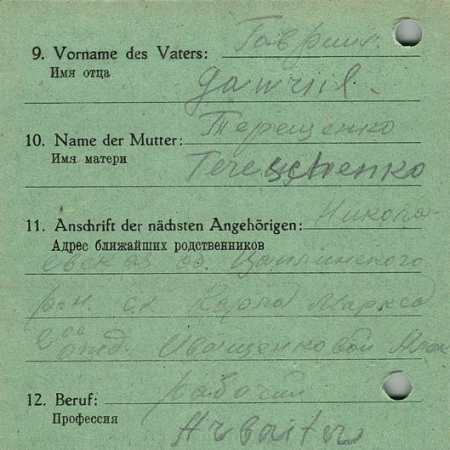 9. Vorname des Vaters: Гавриил
Имя отца
Gawriil.
10. Name der Mutter: Терещенко
Имя матери
Tereschenko
11. Anschrift der nächsten Angehörigen: Никола-
Адрес ближайших родственников
евская об. Цаплинского
р-н. с. Карла Маркса
отд. Иващенковой
12. Beruf: рабочий
Профессия
Arbaiter